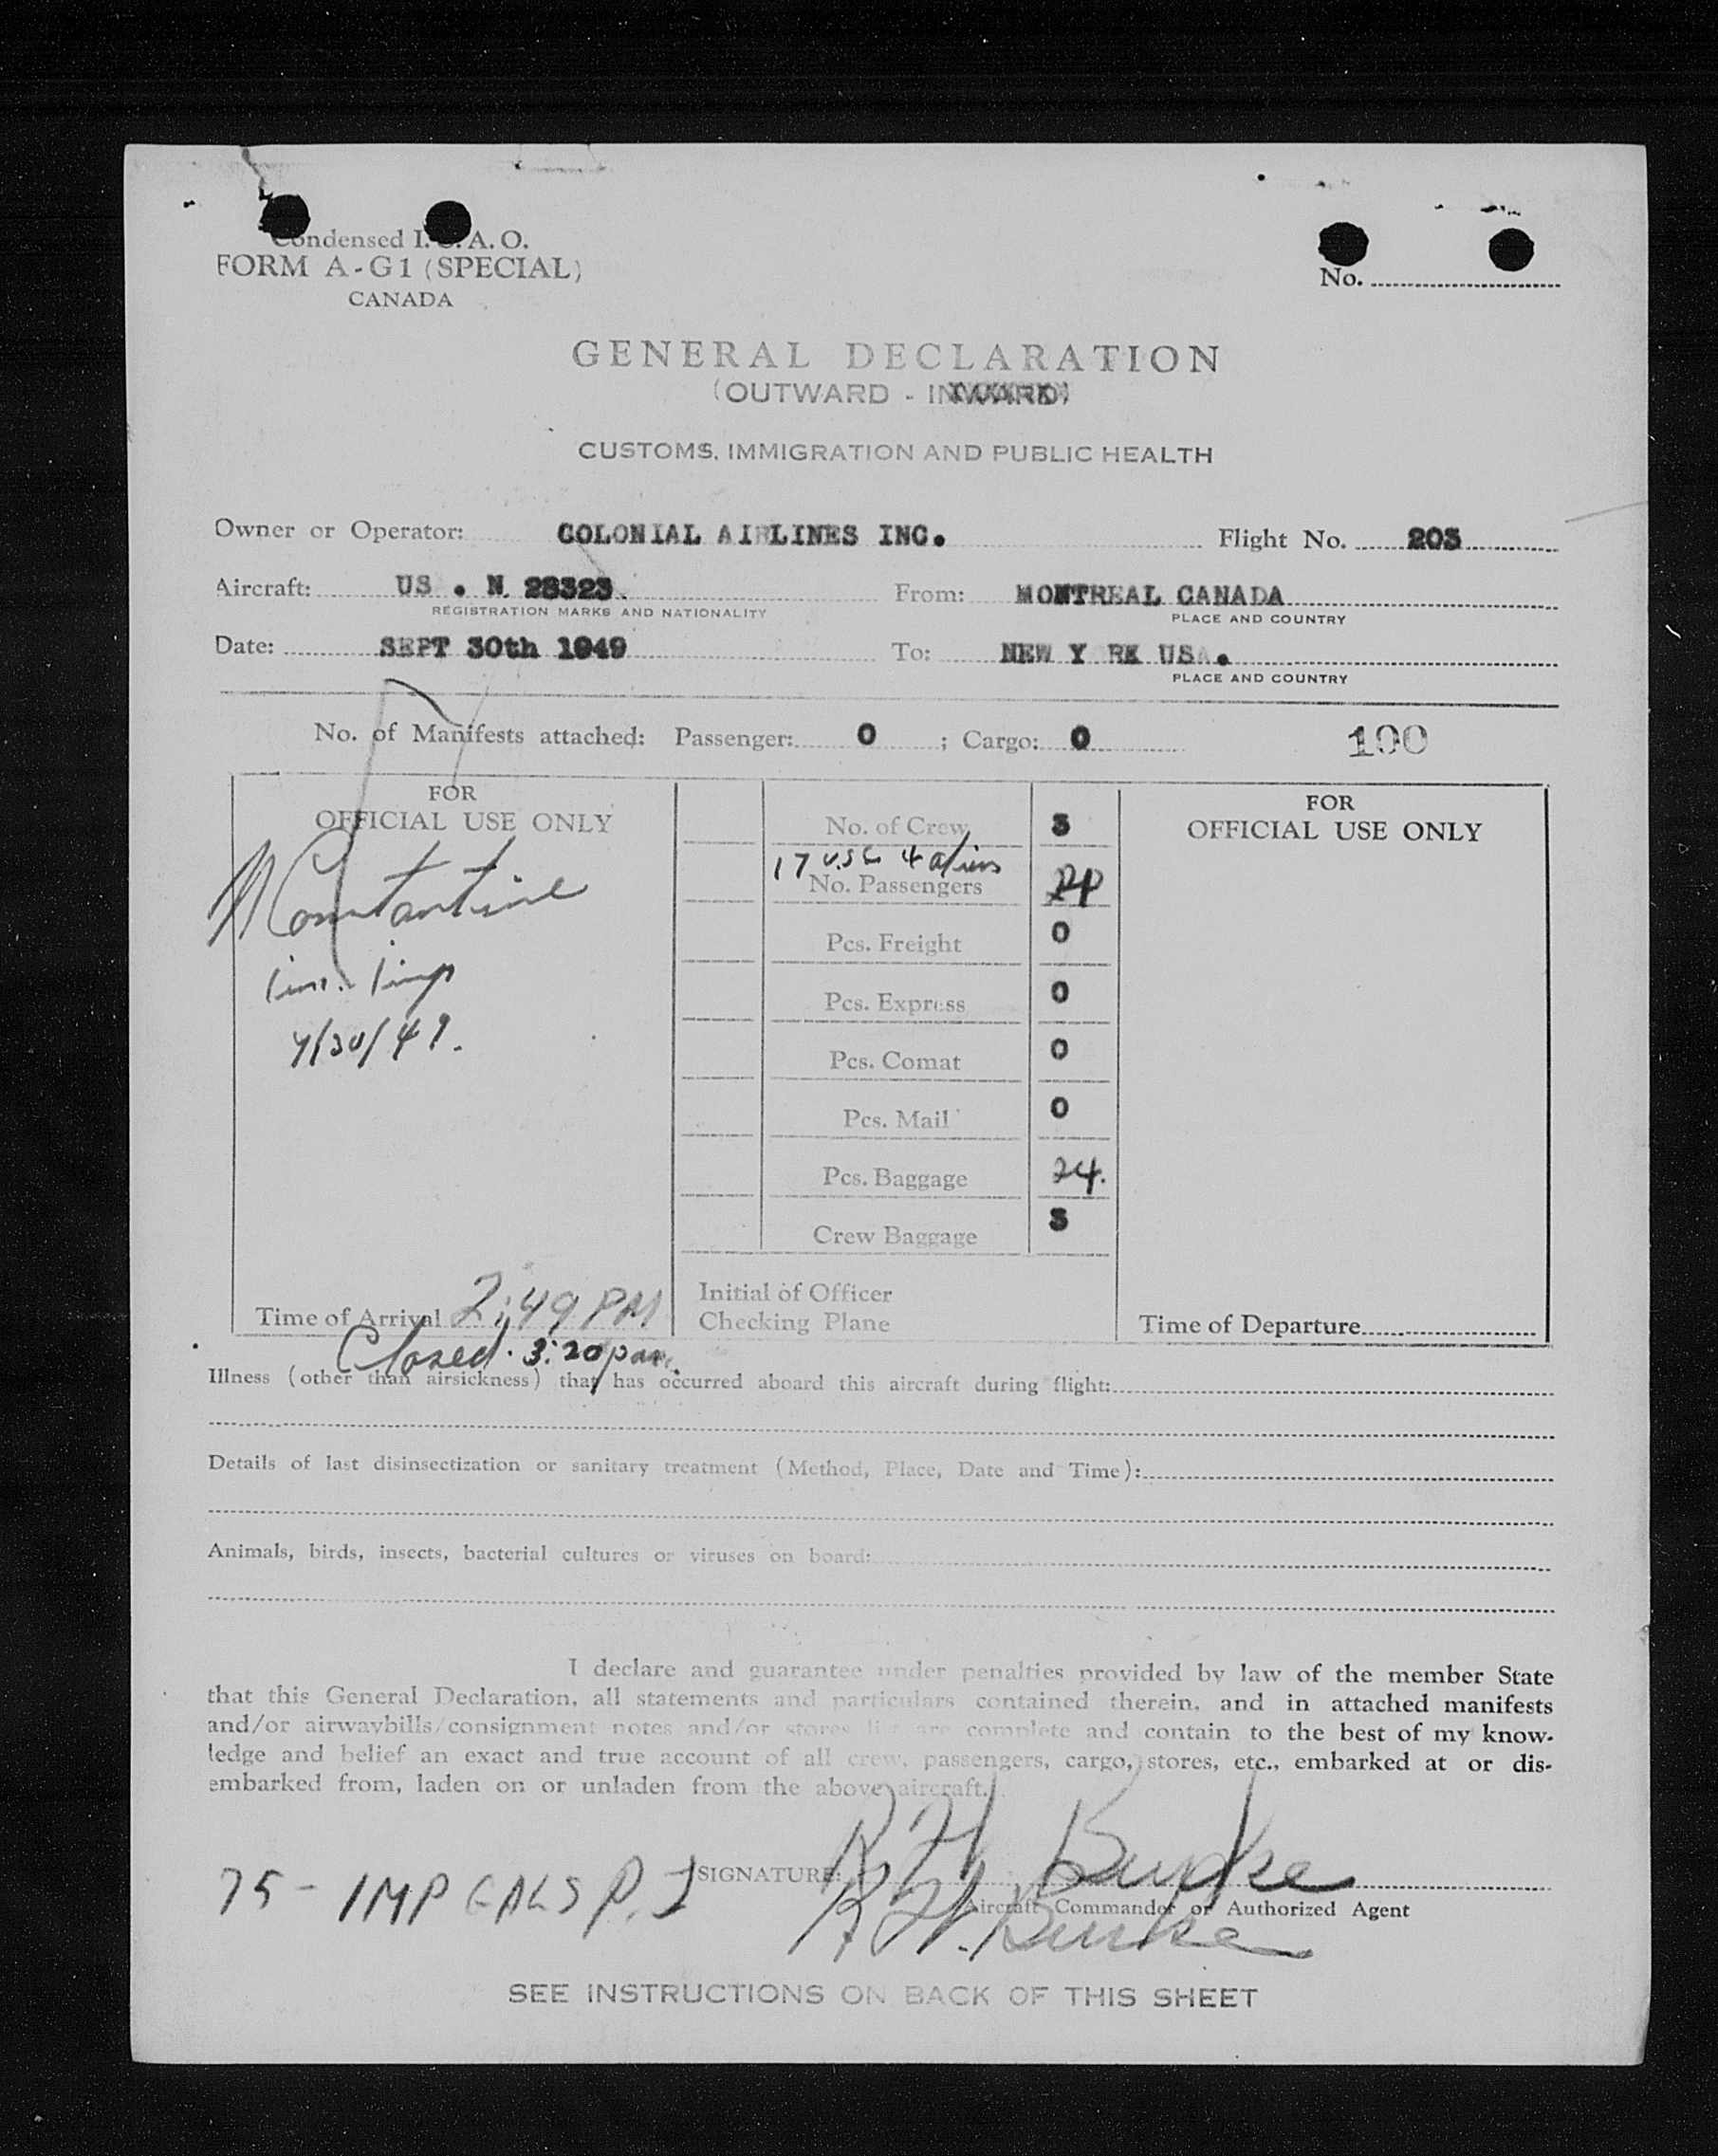 Condensed I.C.A.O.
FORM A-G1 (SPECIAL)
CANADA
No.
GENERAL DECLARATION
(OUTWARD - INWARD)
CUSTOMS, IMMIGRATION AND PUBLIC HEALTH
Owner or Operator: COLONIAL AIRLINES INC. Flight No. 203
Aircraft: US . N. 28323. From: MONTREAL CANADA
REGISTRATION MARKS AND NATIONALITY PLACE AND COUNTRY
Date: SEPT 30th 1949 To: NEW Y RK USA.
PLACE AND COUNTRY
No. of Manifests attached: Passenger: 0 ; Cargo: 0 100
FOR
OFFICIAL USE ONLY
Constantine
9/30/49.
Time of Arrival 2:49 PM
Closed. 3:20 pm.
No. of Crew 3
17 USC 4 aliens
No. Passengers
Pcs. Freight 0
Pcs. Express 0
Pcs. Comat 0
Pcs. Mail 0
Pcs. Baggage 24.
Crew Baggage 3
Initial of Officer
Checking Plane
FOR
OFFICIAL USE ONLY
Time of Departure
Illness (other than airsickness) that has occurred aboard this aircraft during flight:
Details of last disinsectization or sanitary treatment (Method, Place, Date and Time):
Animals, birds, insects, bacterial cultures or viruses on board:
I declare and guarantee under penalties provided by law of the member State
that this General Declaration, all statements and particulars contained therein, and in attached manifests
and/or airwaybills/consignment notes and/or stores list are complete and contain to the best of my know-
ledge and belief an exact and true account of all crew, passengers, cargo, stores, etc., embarked at or dis-
embarked from, laden on or unladen from the above aircraft.
SIGNATURE: R H Burke
Aircraft Commander or Authorized Agent
75 - IMP GALS P. I R. H. Burke
SEE INSTRUCTIONS ON BACK OF THIS SHEET